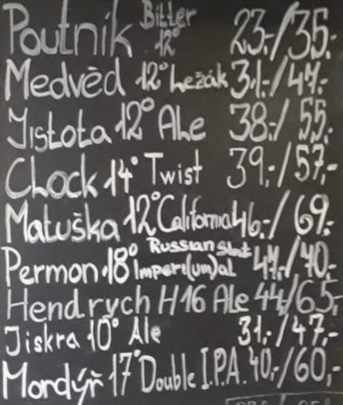 Poutník Bitter 12° 23.-/35.-
Medvěd 12° Ležák 31.-/47.-
Jistota 12° Ale 38.-/55.-
Clock 14° Twist 39.-/57.-
Matuška 12° California 46.-/69.-
Permon 18° Russian Imper(um)al 47.-/40.-
Hendrych H16 Ale 44/65,-
Jiskra 10° Ale 31.-/47.-
Mordýř 17° Double I.P.A. 40,-/60,-